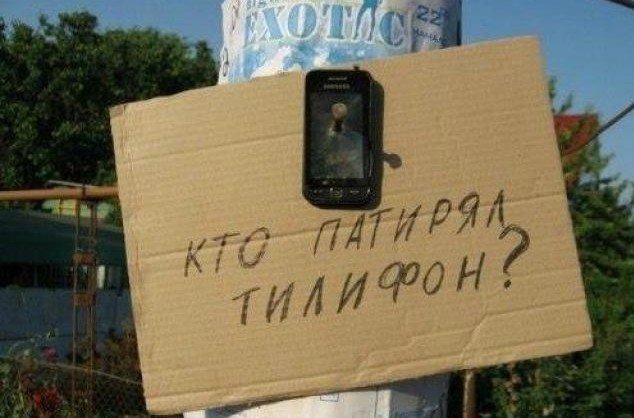 EXOTIC
22
SAMSUNG
КТО ПАТИРЯЛ
ТИЛИФОН?